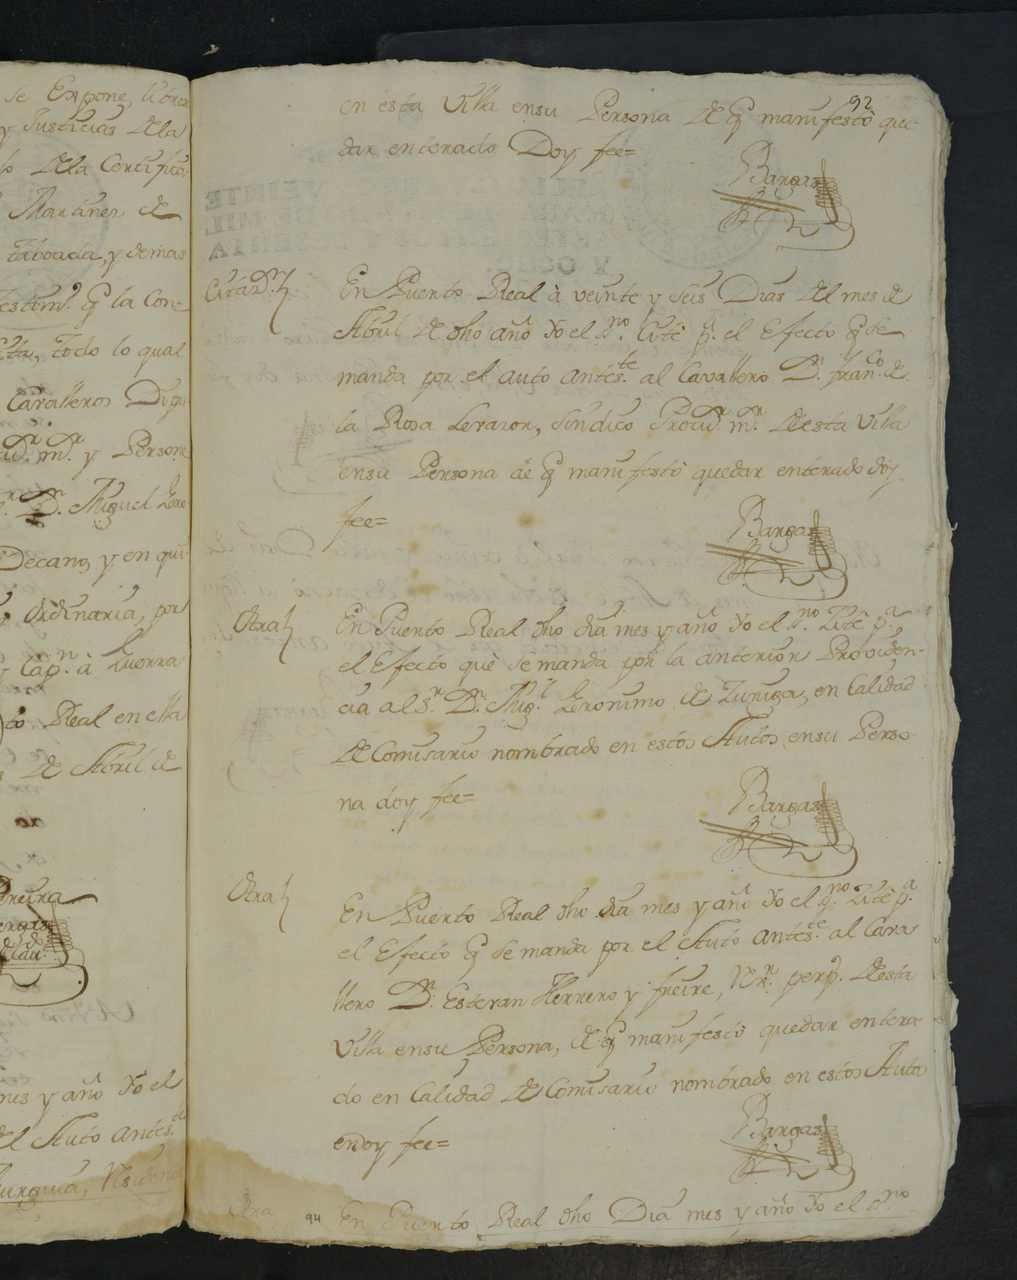 se Expone, 
y Justicias de la
de la Certifica
Martines de
taboada, y demas
testim.º q̃ la Con
todo lo qual
Cavalleros Dipu
y Person
D.n Miguel Gero
Decano, y en qui
Ordinaria, por
Cap.n à Guerra
Real en ella
de Abril de
mes y año Yo el
el Auto antes.te
92
en esta Villa en su Persona de q̃ manifestò que
dar enterado Doy fee=
Bargas
En Puerto Real à veinte y seis Dias del mes de
Abril de dho año Yo el S.no Cite p.a el Efecto q̃ se
manda por el auto antes.te al Cavallero D.n Fran.co de
la Rosa Levasor, Sindico Procu.r m.r de esta Villa
en su Persona de q̃ manifestò quedar enterado doy
fee=
Bargas
Otra
En Puerto Real dho dia mes y año Yo el S.no Cite p.a
el Efecto que se manda por la anterior Providen-
cia al S.r D.n Mig.l Geronimo de Zuñiga, en Calidad
de Comisario nombrado en estos Autos en su Perso
na doy fee=
Bargas
Otra
En Puerto Real dho dia mes y año Yo el S.no Cite p.a
el Efecto q̃ se manda por el Auto antes.te al Cava
llero D.n Estevan Herrero y freire, R.r perp.o de esta
Villa en su Persona, de q̃ manifestò quedar entera
do en Calidad de Comisario nombrado en estos Auto
en doy fee=
Bargas
Otra
94
En Puerto Real dho Dia mes y año Yo el S.no